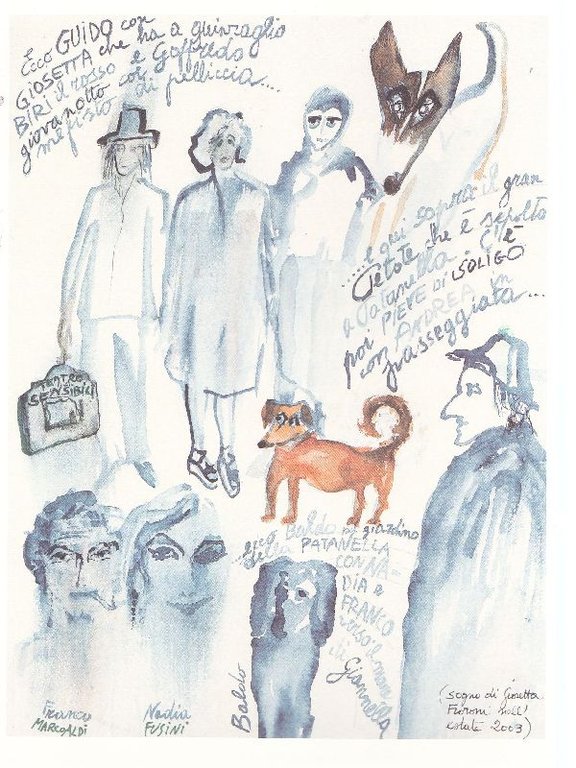 Ecco GUIDO con
GIOSETTA che ha a guinzaglio
BIRì il rosso e Goffredo
giovanotto col
mefisto di pelliccia....
.....e qui sopra il gran
Petote che è sepolto
a Patanella. C'è
poi PIEVE DI SOLIGO
con ANDREA in
passeggiata...
TEATRO
SENSIBILI
ecco Baldo in giardino
della PATANELLA
CON NA-
DIA e
FRANCO
verso il mare
di Giannella
Baldo
Franco
MARCOALDI
Nadia
FUSINI
(sogno di Giosetta
Fioroni nell'
estate 2003)